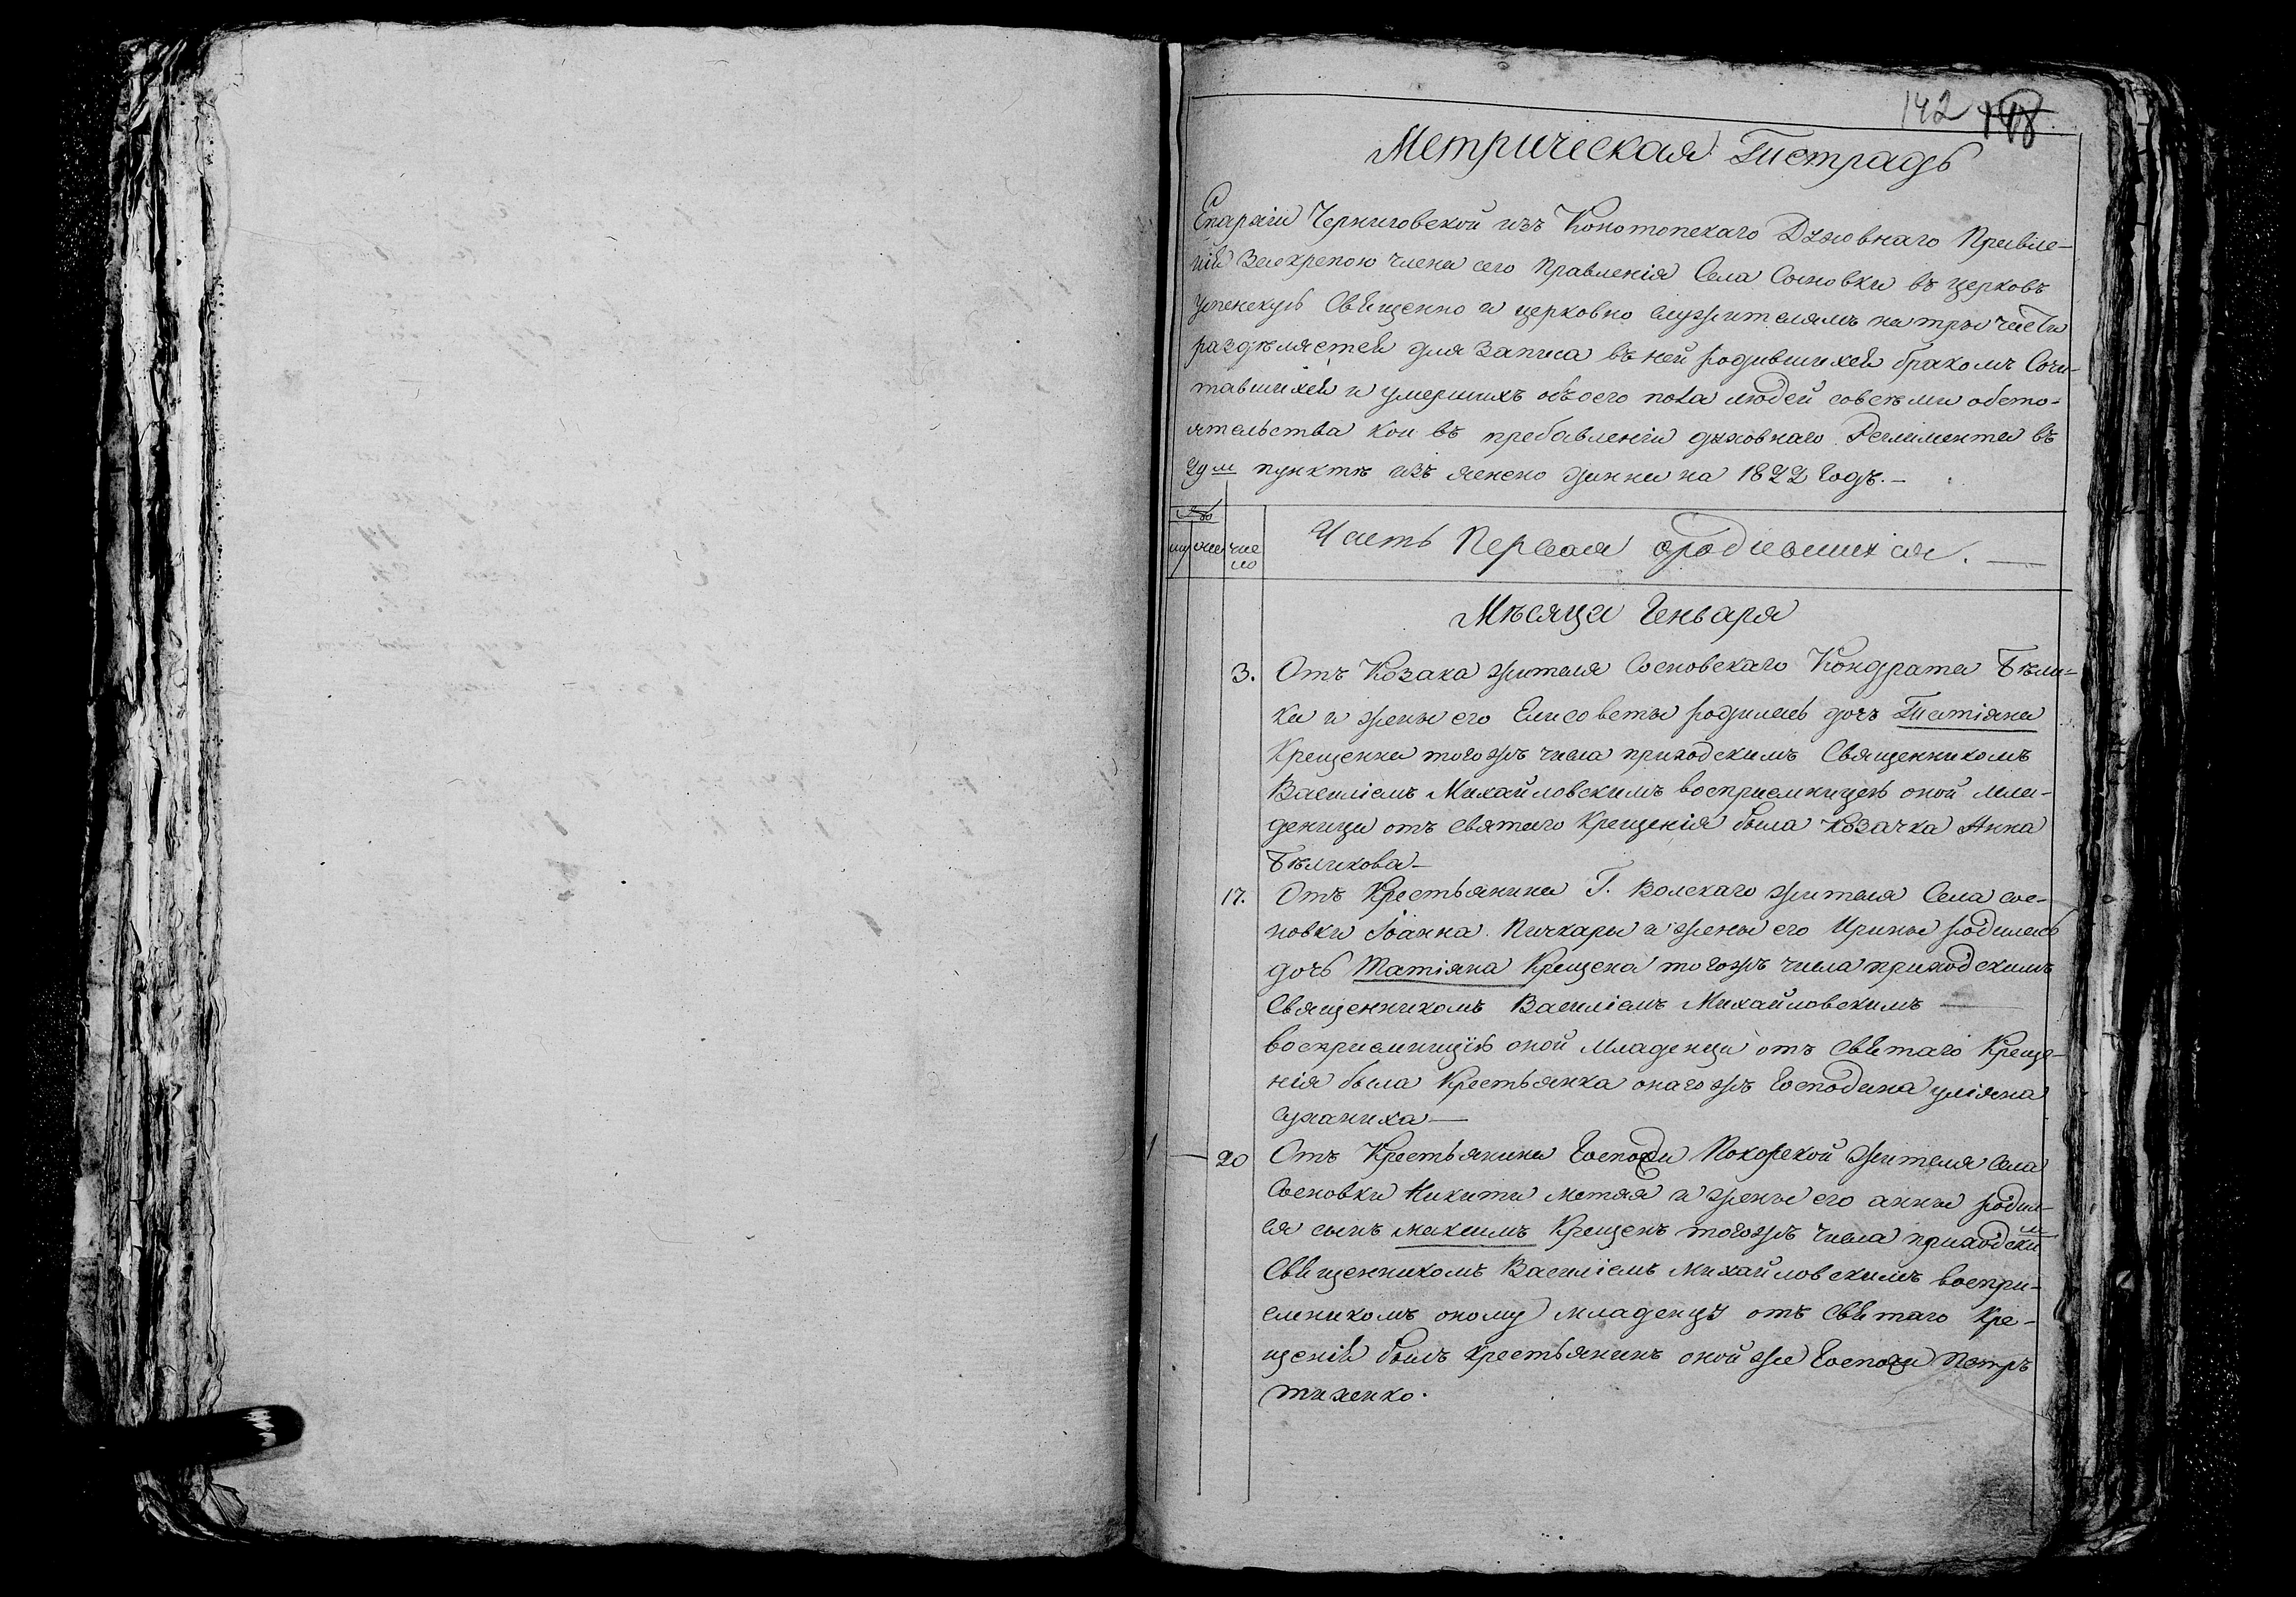 142 148
Метрическая Тетрадь
Епархіи Черниговской изъ Конотопскаго Духовнаго Правле-
нія Заскрепою члена сего Правленія Села Сосновки въ церковь
успенскую Священно и церковно служителямъ на три части
раздѣляетей для Записа въ ней родившихся бракомъ Соче-
тавшихся и умершихъ обоего пола людей совсѣми обсто-
ятельства кои въ пребавленіи духовнаго Регламента въ
29м пунктѣ изъ яснено данна на 1822 Годъ. –
му жен чис
ло
Часть Первая о родившихся. —
Мѣсяца Генваря
3. Отъ Козака жителя Сосновскаго Кондрата Бѣли-
ка и жены его Елисоветы родилась дочь Татіяна
Крещенна тогожъ числа приходскимъ Священникомъ
Василіемъ Михайловскимъ восприемницею оной мла-
деници отъ святаго Крещенія была Козачка Анна
Бѣликова —
17. Отъ Крестьянина Г. Волскаго жителя Села сос-
новки Іоанна Пичкары и жены его Ирины родилась
дочь Татіяна Крещена тогожъ числа приходскимъ
Священникомъ Василіемъ Михайловскимъ —
восприемницею оной Младенци отъ святаго Креще-
нія была Крестьянка онагожъ Господина уліяна
1 — 20 Отъ Крестьянина Госпожи Покорской жителя Села
Сосновки Никити Метяя и жены его анны родил-
ся сынъ максимъ Крещенъ тогожъ числа приходским
Священникомъ Василіемъ Михайловскимъ воспри-
емникомъ оному младенцу отъ святаго Кре-
щенія былъ крестьянинъ оной же Госпожи Петръ
тихенко.